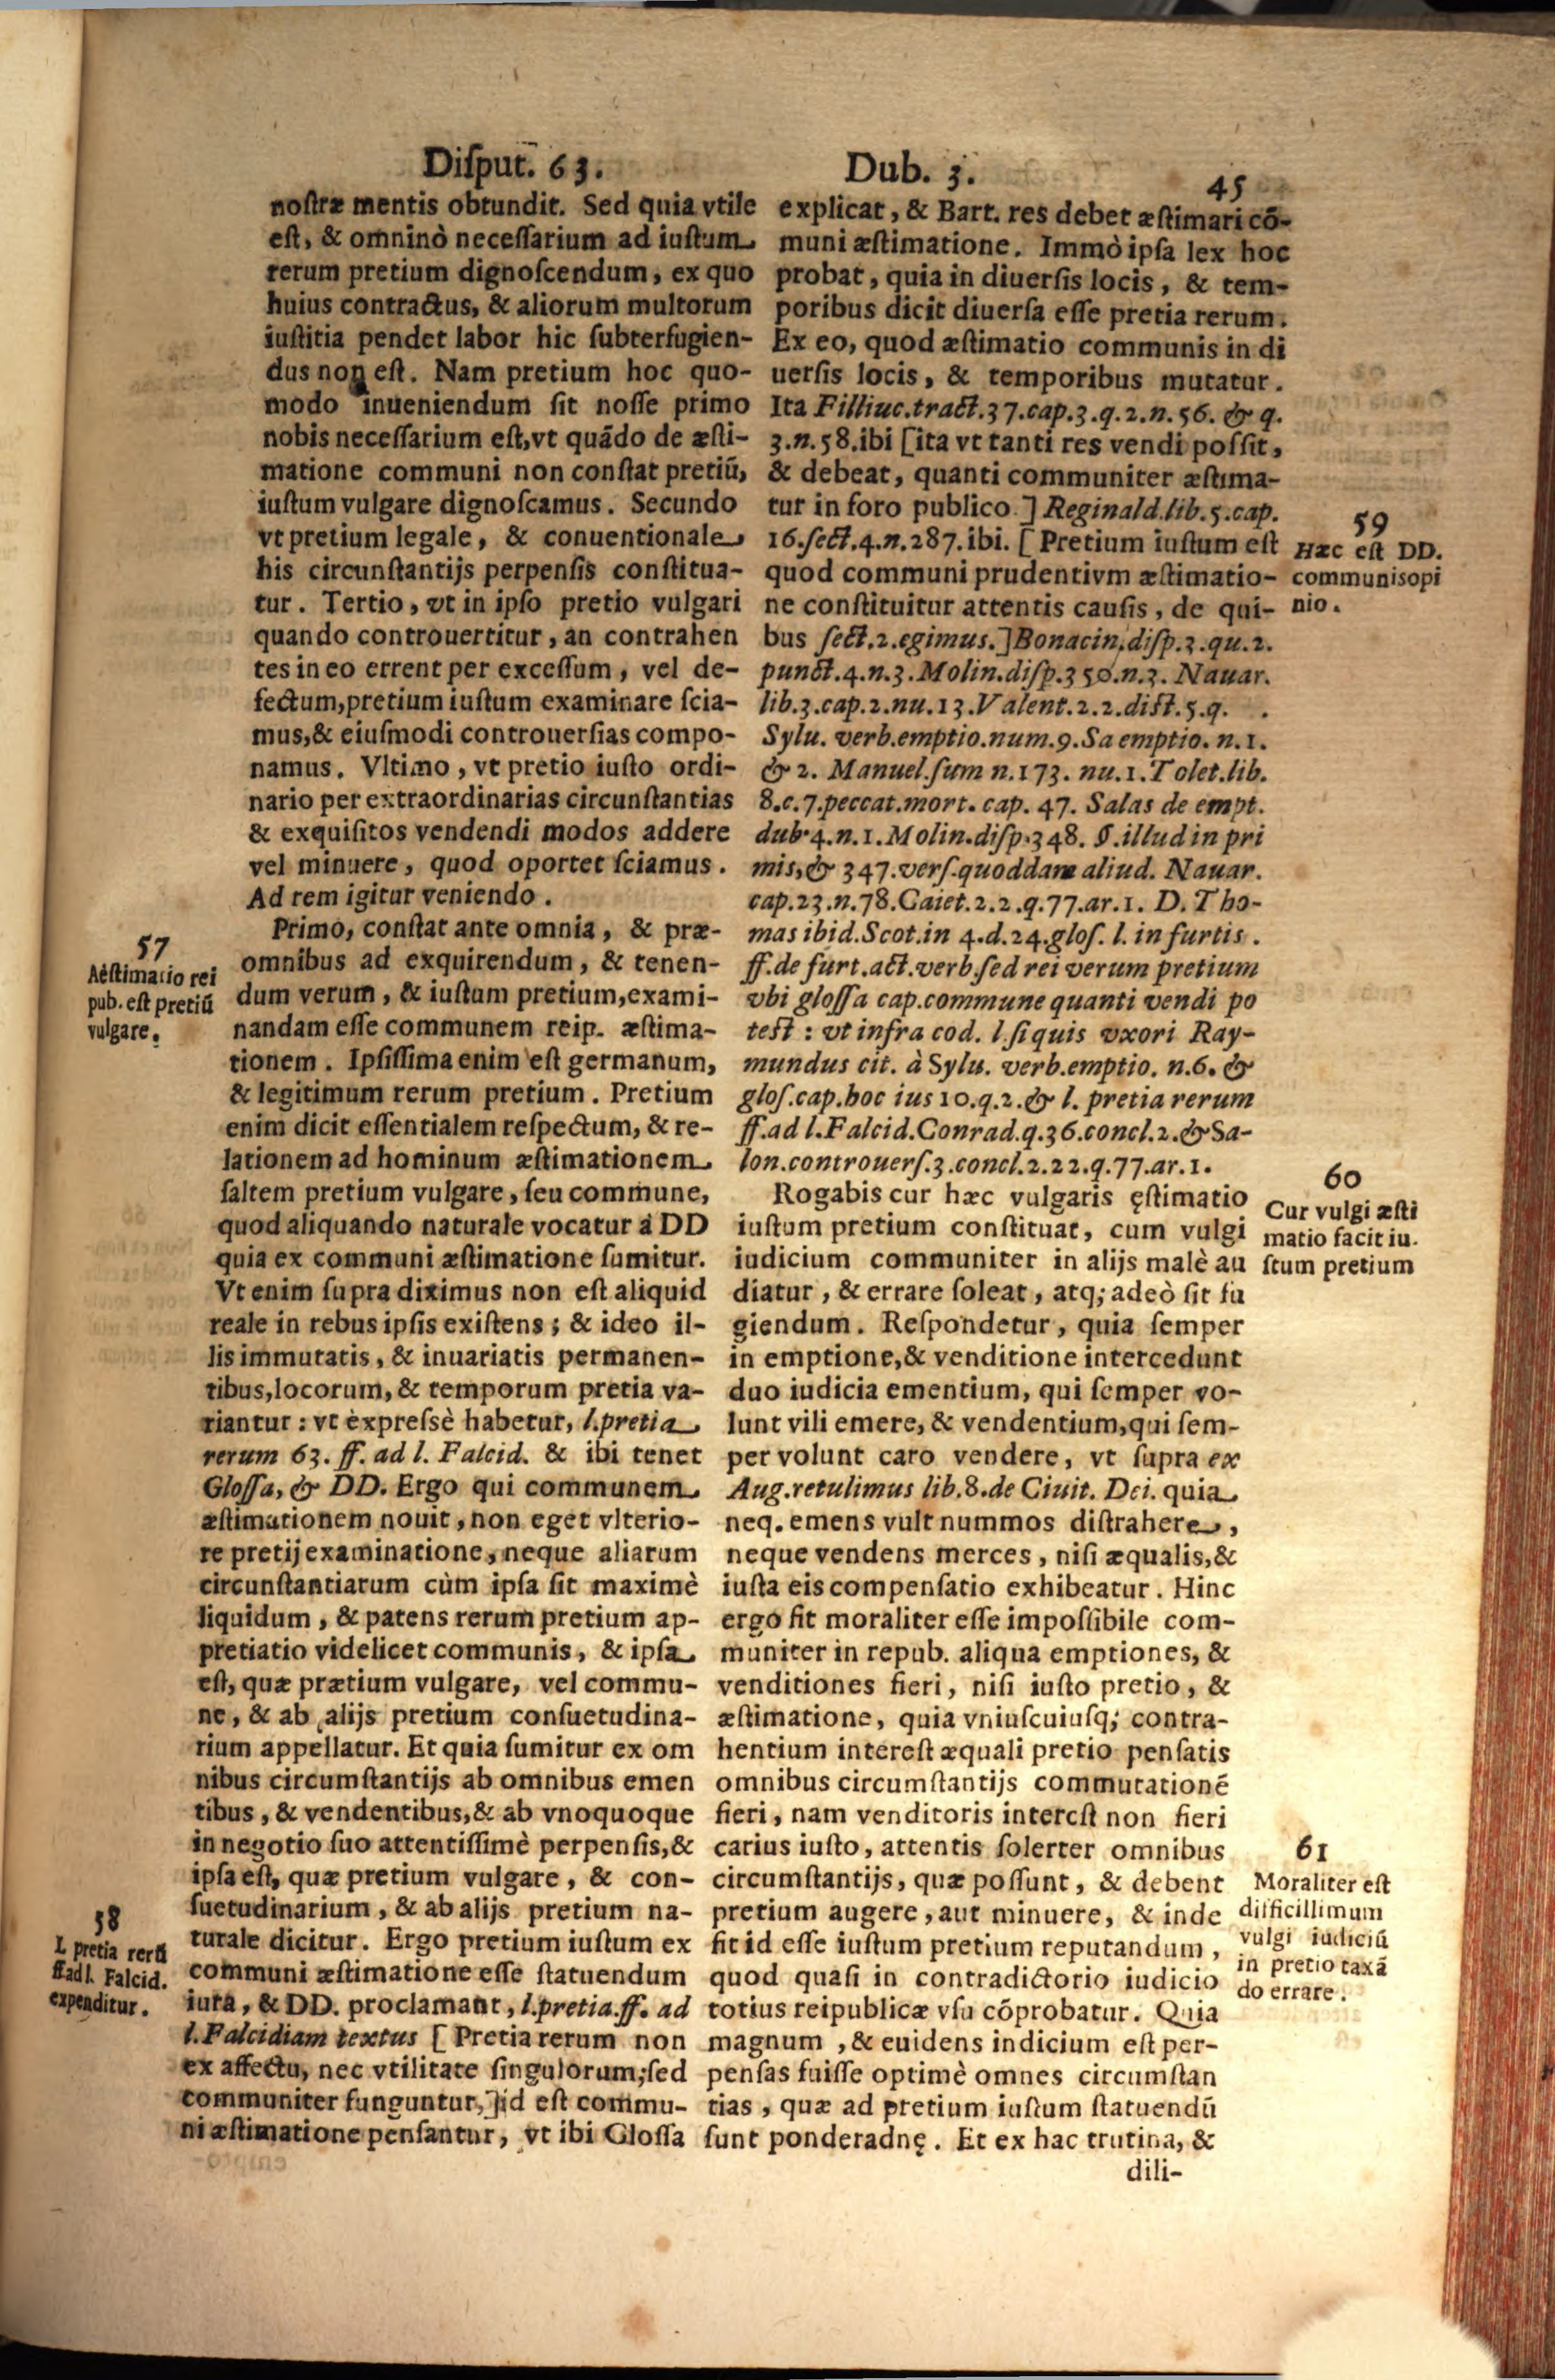 Diſput. 63.
Dub. 3.
45
noſtræ mentis obtundit. Sed quia vtile
eſt, & omninò neceſſarium ad iuſtum
rerum pretium dignoſcendum, ex quo
huius contractus, & aliorum multorum
iuſtitia pendet labor hic ſubterfugien-
dus non eſt. Nam pretium hoc quo-
modo inueniendum ſit noſſe primo
nobis neceſſarium eſt, vt quãdo de æſti-
matione communi non conſtat pretiũ,
iuſtum vulgare dignoſcamus. Secundo
vt pretium legale, & conuentionale
his circunſtantijs perpenſis conſtitua-
tur. Tertio, vt in ipſo pretio vulgari
quando controuertitur, an contrahen
tes in eo errent per exceſſum, vel de-
fectum, pretium iuſtum examinare ſcia-
mus, & eiuſmodi controuerſias compo-
namus. Vltimo, vt pretio iuſto ordi-
nario per extraordinarias circunſtantias
& exquiſitos vendendi modos addere
vel minuere, quod oportet ſciamus.
Ad rem igitur veniendo.
57
Aéſtimatio rei
pub. eſt pretiũ
vulgare.
Primo, conſtat ante omnia, & præ-
omnibus ad exquirendum, & tenen-
dum verum, & iuſtum pretium, exami-
nandam eſſe communem reip. æſtima-
tionem. Ipſiſſima enim eſt germanum,
& legitimum rerum pretium. Pretium
enim dicit eſſentialem reſpectum, & re-
lationem ad hominum æſtimationem
ſaltem pretium vulgare, ſeu commune,
quod aliquando naturale vocatur á DD
quia ex communi æſtimatione ſumitur.
Vt enim ſupra diximus non eſt aliquid
reale in rebus ipſis exiſtens; & ideo il-
lis immutatis, & inuariatis permanen-
tibus, locorum, & temporum pretia va-
riantur: vt èxpreſsè habetur, l.pretia
rerum 63. ff. ad l. Falcid. & ibi tenet
Gloſſa, & DD. Ergo qui communem
æſtimationem nouit, non eget vlterio-
re pretij examinatione, neque aliarum
circunſtantiarum cùm ipſa ſit maximè
liquidum, & patens rerum pretium ap-
pretiatio videlicet communis, & ipſa
eſt, quæ prætium vulgare, vel commu-
ne, & ab alijs pretium conſuetudina-
rium appellatur. Et quia ſumitur ex om
nibus circumſtantijs ab omnibus emen
tibus, & vendentibus, & ab vnoquoque
in negotio ſuo attentiſſimè perpenſis, &
ipſa eſt, quæ pretium vulgare, & con-
ſuetudinarium, & ab alijs pretium na-
turale dicitur. Ergo pretium iuſtum ex
communi æſtimatione eſſe ſtatuendum
iura, & DD. proclamant, l.pretia.ff. ad
l.Falcidiam textus [ Pretia rerum non
ex affectu, nec vtilitate ſingulorum; ſed
communiter funguntur,] id eſt commu-
ni æſtimatione penſantur, vt ibi Gloſſa
58
L pretia rerũ
ff ad l. Falcid.
expenditur.
explicat, & Bart. res debet æſtimari cõ-
muni æſtimatione. Immò ipſa lex hoc
probat, quia in diuerſis locis, & tem-
poribus dicit diuerſa eſſe pretia rerum.
Ex eo, quod æſtimatio communis in di
uerſis locis, & temporibus mutatur.
Ita Filliuc.tract.37.cap.3.q.2.n.56. & q.
3.n.58.ibi [ita vt tanti res vendi poſſit,
& debeat, quanti communiter æſtima-
tur in foro publico ] Reginald.lib.5.cap.
16.ſect.4.n.287.ibi. [ Pretium iuſtum eſt
quod communi prudentivm æſtimatio-
ne conſtituitur attentis cauſis, de qui-
bus ſect.2.egimus.] Bonacin.diſp.3.qu.2.
punct.4.n.3.Molin.diſp.350.n.3. Nauar.
lib.3.cap.2.nu.13.Valent.2.2.diſt.5.q. .
Sylu. verb.emptio.num.9.Sa emptio. n.1.
& 2. Manuel.ſum n.173. nu.1.Tolet.lib.
8.c.7.peccat.mort. cap. 47. Salas de empt.
dub.4.n.1.Molin.diſp.348. §.illud in pri
mis, & 347.verſ.quoddam aliud. Nauar.
cap.23.n.78.Caiet.2.2.q.77.ar.1. D. Tho-
mas ibid.Scot.in 4.d.24.gloſ. l. in furtis.
ff.de furt.act.verb.ſed rei verum pretium
vbi gloſſa cap.commune quanti vendi po
teſt: vt infra cod. l.ſi quis vxori Ray-
mundus cit. à Sylu. verb.emptio. n.6. &
gloſ.cap.hoc ius 10.q.2.& l. pretia rerum
ff.ad l.Falcid.Conrad.q.36.concl.2.& Sa-
lon.controuerſ.3.concl.2.22.q.77.ar.1.
59
Hæc eſt DD.
communis opi
nio.
Rogabis cur hæc vulgaris ęſtimatio
iuſtum pretium conſtituat, cum vulgi
iudicium communiter in alijs malè au
diatur, & errare ſoleat, atq; adeò ſit fu
giendum. Reſpondetur, quia ſemper
in emptione, & venditione intercedunt
duo iudicia ementium, qui ſemper vo-
lunt vili emere, & vendentium, qui ſem-
per volunt caro vendere, vt ſupra ex
Aug.retulimus lib.8.de Ciuit. Dei. quia
neq. emens vult nummos diſtrahere,
neque vendens merces, niſi æqualis, &
iuſta eis compenſatio exhibeatur. Hinc
ergo fit moraliter eſſe impoſſibile com-
muniter in repub. aliqua emptiones, &
venditiones fieri, niſi iuſto pretio, &
æſtimatione, quia vniuſcuiuſq; contra-
hentium intereſt æquali pretio penſatis
omnibus circumſtantijs commutationẽ
fieri, nam venditoris intereſt non fieri
carius iuſto, attentis ſolerter omnibus
circumſtantijs, quæ poſſunt, & debent
pretium augere, aut minuere, & inde
fit id eſſe iuſtum pretium reputandum,
quod quaſi in contradictorio iudicio
totius reipublicæ vſu cõprobatur. Quia
magnum, & euidens indicium eſt per-
penſas fuiſſe optimè omnes circumſtan
tias, quæ ad pretium iuſtum ſtatuendũ
ſunt ponderadnę. Et ex hac trutina, &
dili-
60
Cur vulgi æſti
matio facit iu-
ſtum pretium
61
Moraliter eſt
difficillimum
vulgi iudiciũ
in pretio taxã
do errare.